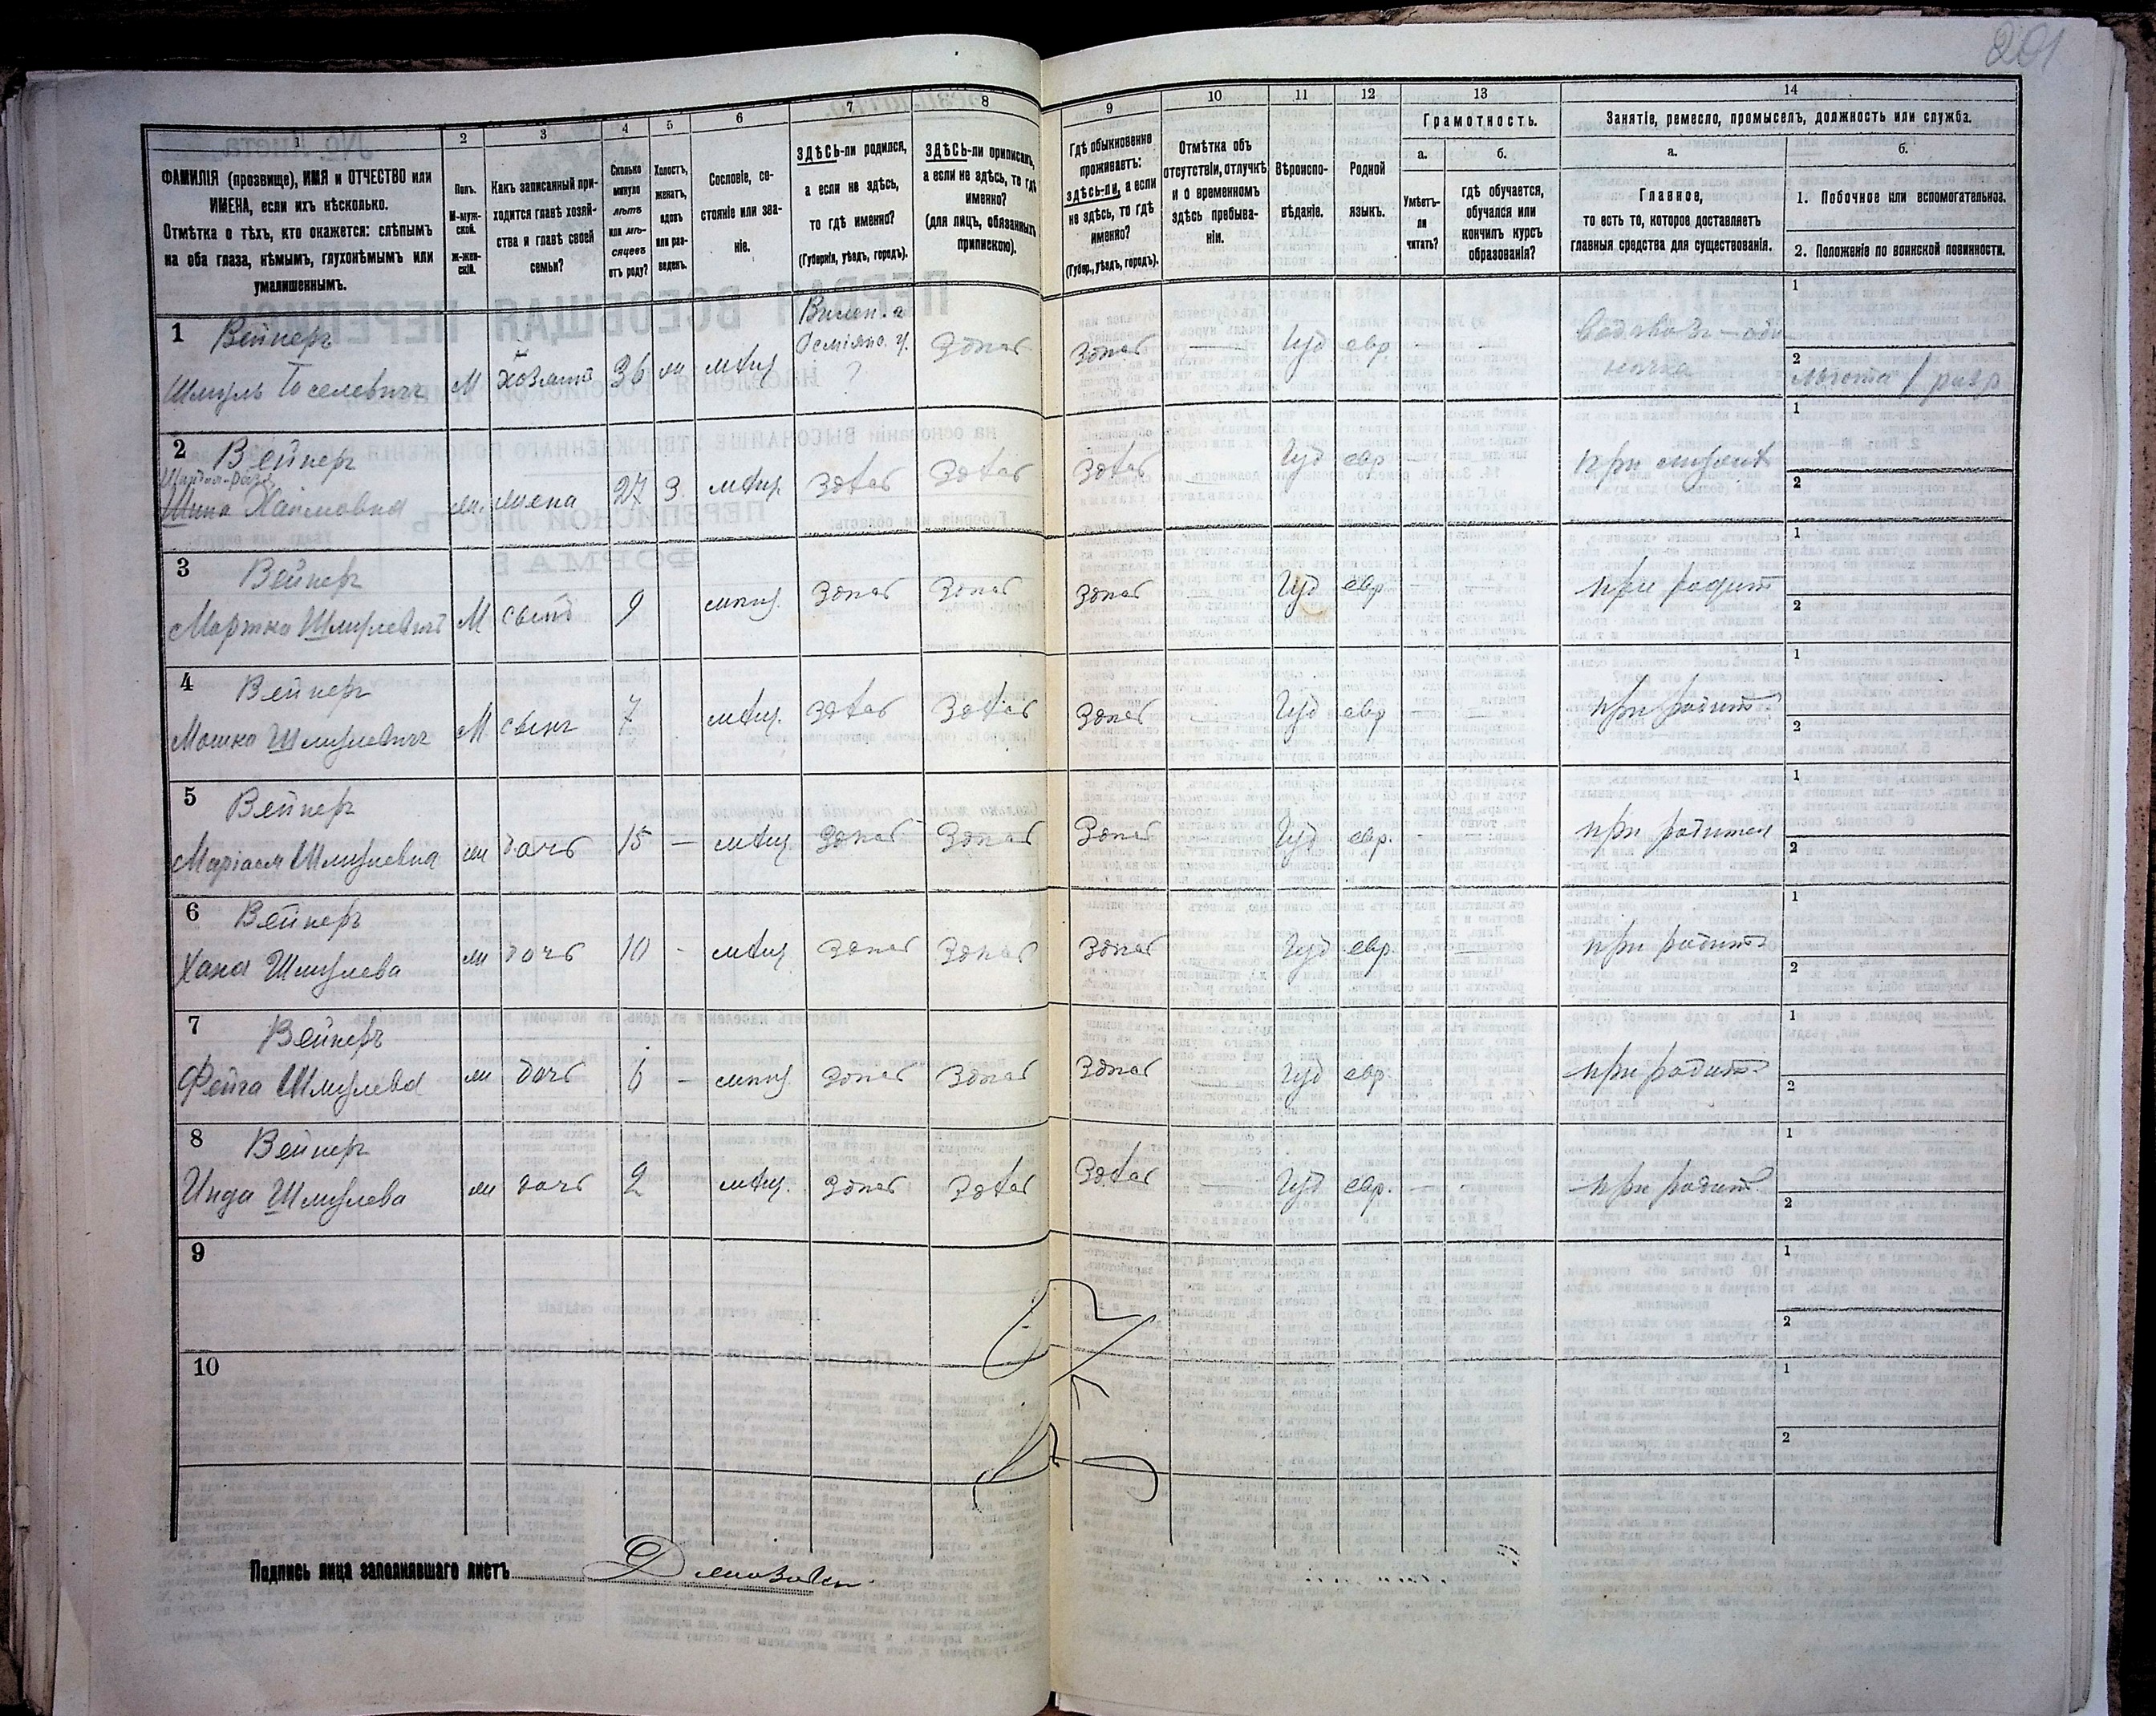 201
1 2 3 4 5 6 7 8 9 10 11 12 13 14
ФАМИЛІЯ (прозвище), ИМЯ и ОТЧЕСТВО или ИМЕНА, если ихъ нѣсколько.
Отмѣтка о тѣхъ, кто окажется: слѣпымъ на оба глаза, нѣмымъ, глухонѣмымъ или умалишеннымъ.
Полъ. М-мужской. Ж-женскій.
Какъ записанный приходится главѣ хозяйства и главѣ своей семьи?
Сколько минуло лѣтъ или мѣсяцевъ отъ роду?
Холостъ, женатъ, вдовъ или разведенъ.
Сословіе, состояніе или званіе.
ЗДѢСЬ-ли родился, а если не здѣсь, то гдѣ именно? (Губернія, уѣздъ, городъ).
ЗДѢСЬ-ли приписанъ, а если не здѣсь, то гдѣ именно? (для лицъ, обязанныхъ припискою).
Гдѣ обыкновенно проживаетъ: здѣсь-ли, а если не здѣсь, то гдѣ именно? (Губер., уѣздъ, городъ).
Отмѣтка объ отсутствіи, отлучкѣ и о временномъ здѣсь пребываніи.
Вѣроисповѣданіе.
Родной языкъ.
Грамотность.
а. Умѣетъ-ли читать?
б. гдѣ обучается, обучался или кончилъ курсъ образованія?
Занятіе, ремесло, промыселъ, должность или служба.
а. Главное, то есть то, которое доставляетъ главныя средства для существованія.
б. 1. Побочное или вспомогательное.
2. Положеніе по воинской повинности.
1 Вейнеръ Вилен. г. Ошмянс. у. ?
Шмуль Іоселевичъ М хозяинъ 36 ж мѣщ здѣсь здѣсь — Іуд евр — -
1
2 льгота 1 разр
2 Вейнеръ
Хаимовна ж. жена 27 З. мѣщ. здѣсь здѣсь здѣсь — Іуд евр — при мужѣ
1
2
3 Вейнеръ
Шмулевичъ М сынъ 9 мѣщ. здѣсь здѣсь здѣсь — Іуд евр — — при родит
1
2
4 Вейнеръ
Мошко Шмулевичъ М сынъ 7 мѣщ. здѣсь здѣсь здѣсь — Іуд евр — — при родит.
1
2
5 Вейнеръ
Маріася Шмулевна ж дочь 15 — мѣщ здѣсь здѣсь здѣсь Іуд евр. - — при родител
1
2
6 Вейнеръ
Хана Шмулева ж дочь 10 - мѣщ здѣсь здѣсь здѣсь Іуд евр. — при родит
1
2
7 Вейнеръ
Фейга Шмулева ж дочь 6 — мѣщ здѣсь здѣсь здѣсь — Іуд евр. при родит
1
2
8 Вейнеръ
Шмулева ж дочь 2 мѣщ. здѣсь здѣсь здѣсь — Іуд евр. — - при родит
1
2
9
1
2
10
1
2
Подпись лица заполнявшаго листъ